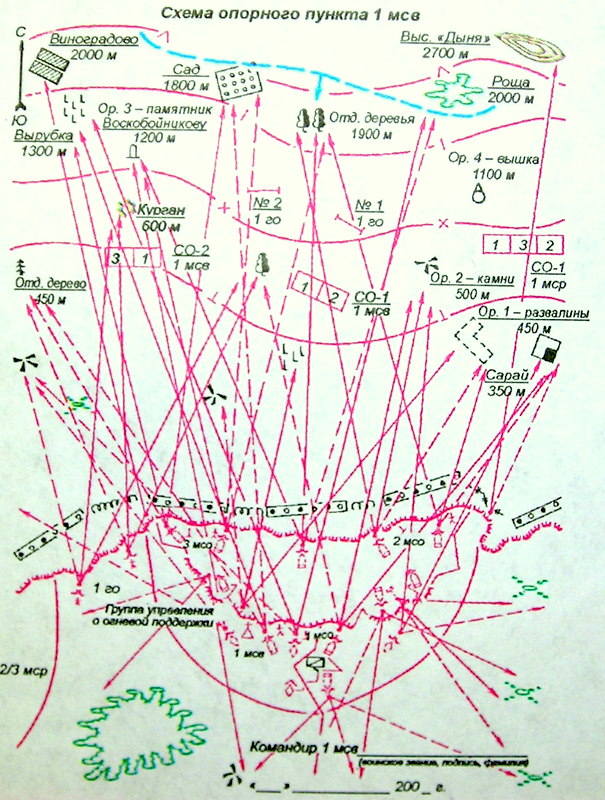 Схема опорного пункта 1 мсв
С
Виноградово
2000 м
Выс. «Дыня»
2700 м
Сад
1800 м
Роща
2000 м
Ю
Ор. 3 – памятник
Воскобойникову
1200 м
Отд. деревья
1900 м
Вырубка
1300 м
Ор. 4 – вышка
1100 м
Курган
600 м
№ 2
1 го
№ 1
1 го
3 1
СО-2
1 мсв
1 3 2
СО-1
1 мср
Отд. дерево
450 м
1 2
СО-1
1 мсв
Ор. 2 – камни
500 м
Ор. 1 – развалины
450 м
Сарай
350 м
3 мсо
2 мсо
1 го
Группа управления
о огневой поддержки
1 мсо
1 мсв
2/3 мср
Командир 1 мсв
(воинское звание, подпись, фамилия)
«___» ____________ 200_ г.